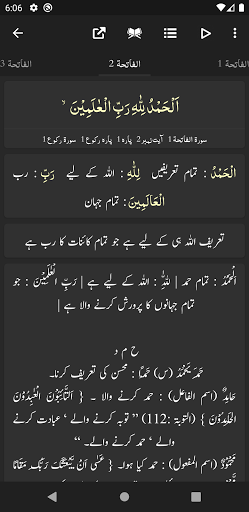 6:06
الفاتحة 1
الفاتحة 2
الفاتحة 3
اَلْحَمْدُ لِلّٰهِ رَبِّ الْعٰلَمِيْنَ ۙ
سورة الفاتحة 1 آیت نمبر 2 پارہ 1 پارہ رکوع 1 سورة رکوع 1
اَلْحَمْدُ : تمام تعریفیں لِلّٰهِ : اللہ کے لیے رَبِّ : رب
الْعَالَمِينَ : تمام جہان
تعریف اللہ ہی کے لیے ہے جو تمام کائنات کا رب ہے
اَلْحَمْدُ : تمام حمد | لِلّٰهِ : اللہ کے لیے ہے | رَبِّ الْعٰلَمِيْنَ : جو
تمام جہانوں کا پرورش کرنے والا ہے |
ح م د
حَمِدَ يَحْمَدُ (س) حَمْدًا : محسن کی تعریف کرنا۔
حَامِدٌ (اسم الفاعل) : حمد کرنے والا ۔ { اَلتَّآئِبُوْنَ الْعٰبِدُوْنَ
الْحٰمِدُوْنَ } (التوبۃ :112) ” توبہ کرنے والے ‘ عبادت کرنے
والے ‘ حمد کرنے والے۔ “
(اسم المفعول) : حمد کیا ہوا۔ { عَسٰٓى اَنْ يَّبْعَثَكَ رَبُّكَ مَقَامًا